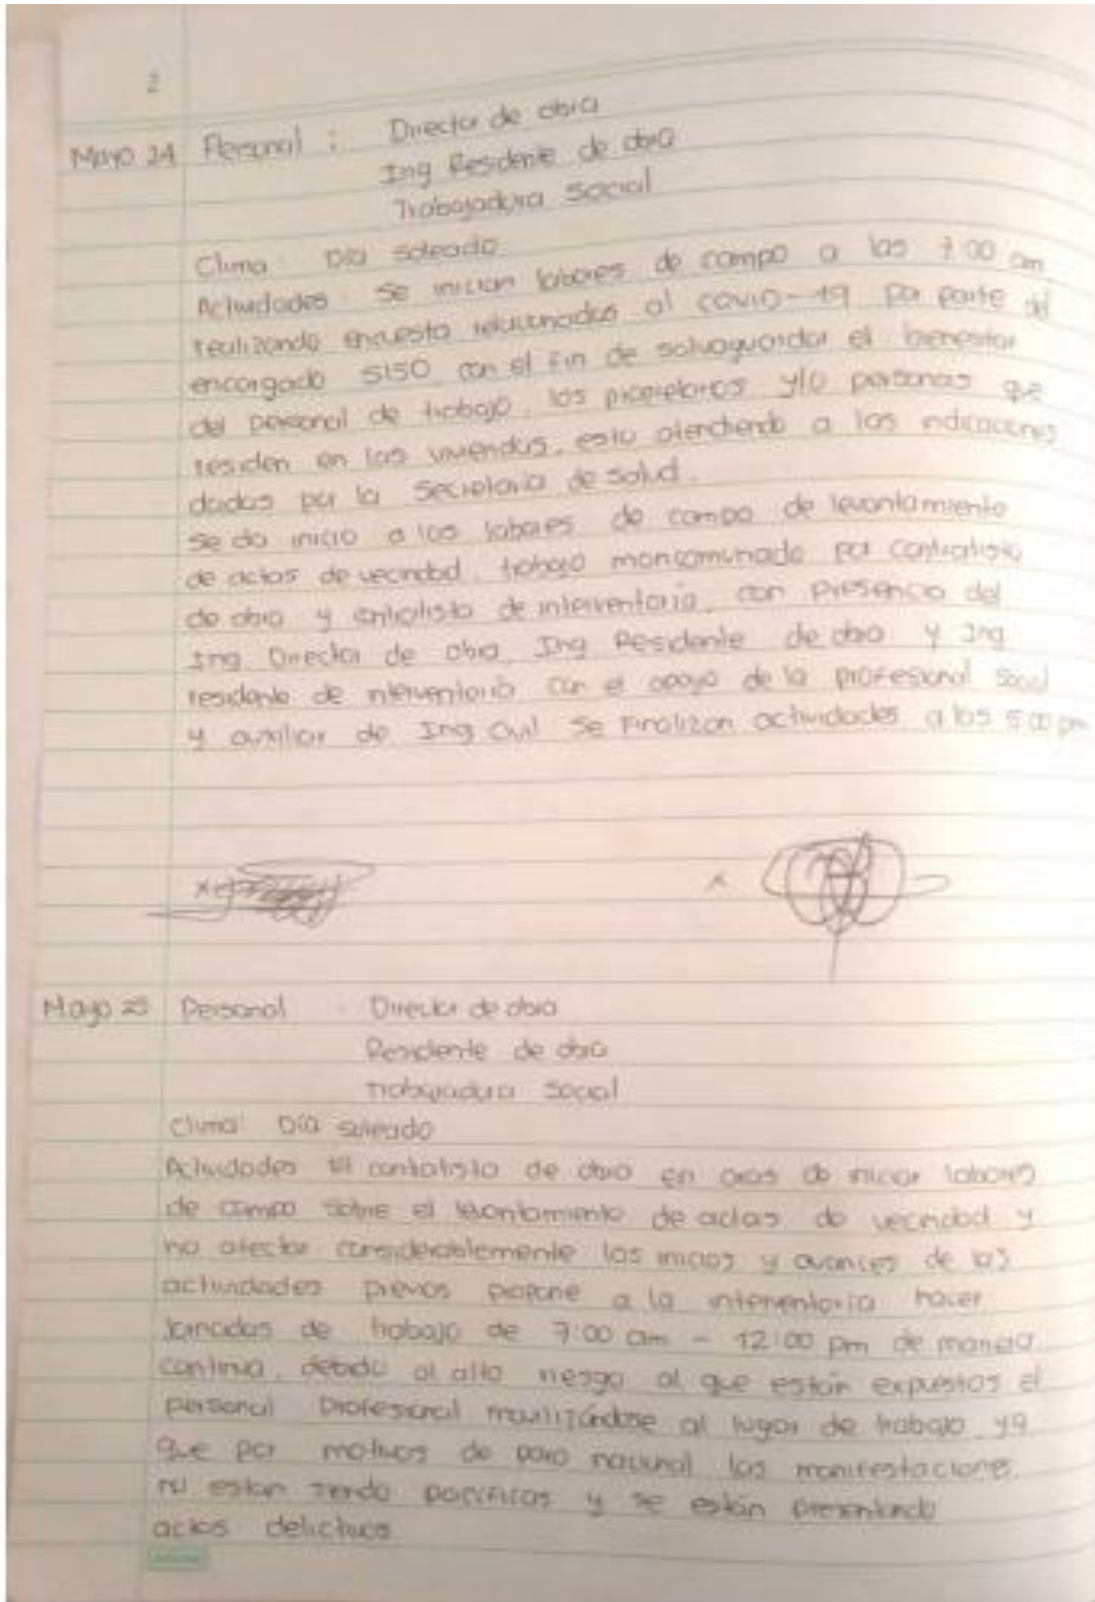 2
Mayo 24 Personal : Director de obra
Ing Residente de obra
Trabajadora Social
Clima Día soleado
Actividades Se inician labores de campo a las 7:00 am
realizando encuesta relacionadas al covid-19 por parte del
encargado SISO con el fin de salvaguardar el bienestar
del personal de trabajo, los propietarios y/o personas que
residen en las viviendas, esto atendiendo a las indicaciones
dadas por la Secretaria de Salud.
se da inicio a las labores de campo de levantamiento
de actas de vecindad, trabajo mancomunado por contratista
de obra y contratista de interventoria, con presencia del
Ing Director de obra, Ing Residente de obra y Ing
residente de interventoria con el apoyo de la profesional Social
y auxiliar de Ing Civil Se Finalizan actividades a las 5:00 pm
Mayo 25 Personal Director de obra
Residente de obra
Trabajadora Social
Clima Día soleado
Actividades El contratista de obra en aras de iniciar labores
de campo sobre el levantamiento de actas de vecindad y
no afectar considerablemente los inicios y avances de las
actividades previas propone a la interventoria hacer
Jornadas de trabajo de 7:00 am - 12:00 pm de manera
continua, debido al alto riesgo al que están expuestos el
personal profesional movilizándose al lugar de trabajo ya
que por motivos de paro nacional las manifestaciones
no estan siendo pacificas y se están presentando
actos delictivos